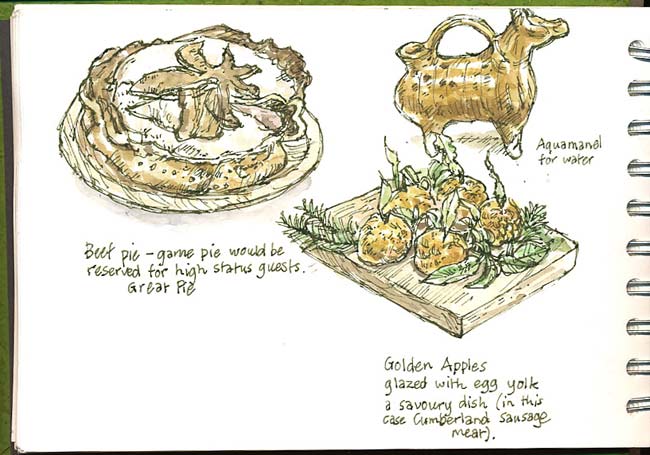 Aquamanel
for water
Beef pie – game pie would be
reserved for high status guests.
Great Pie
Golden Apples
glazed with egg yolk
a savoury dish (in this
case Cumberland sausage
meat).